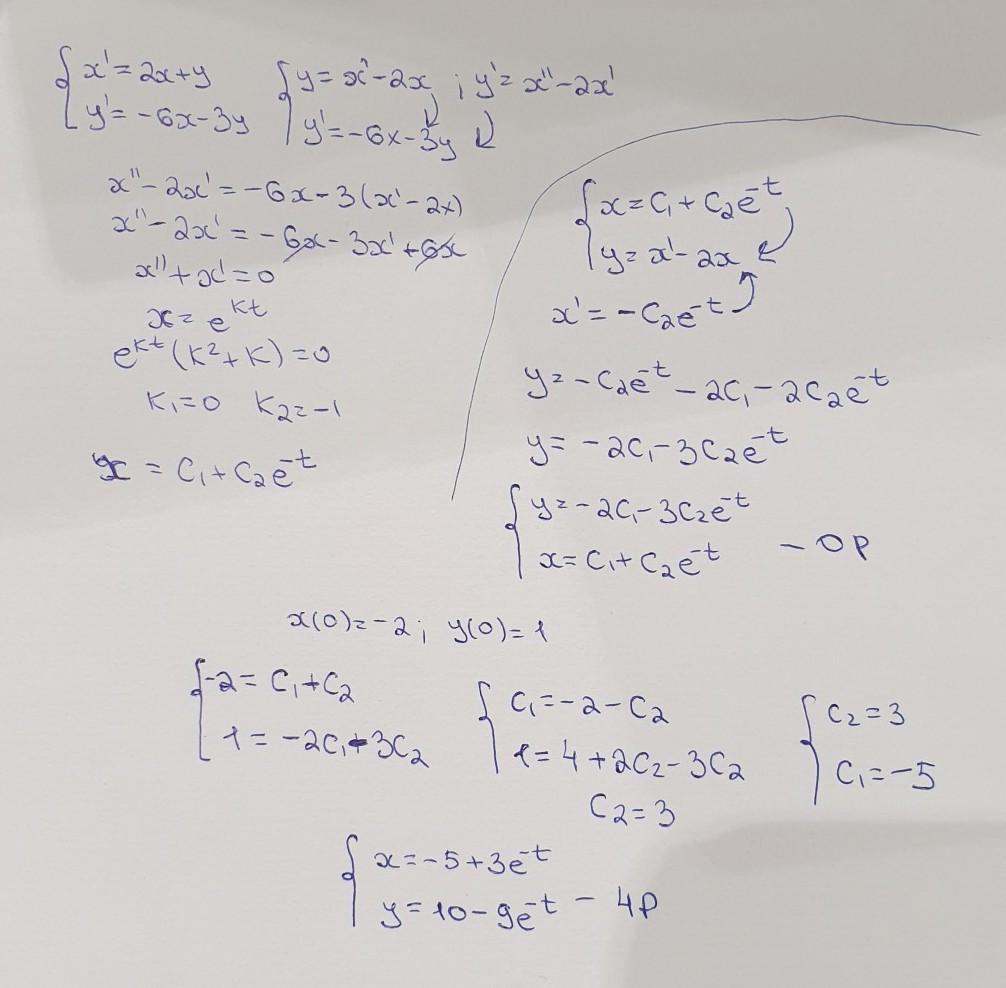 { x' = 2x+y { y = x' - 2x ; y' = x'' - 2x'
y' = -6x-3y y' = -6x-3y
x'' - 2x' = -6x - 3(x' - 2x)
x'' - 2x' = -6x - 3x' + 6x
x'' + x' = 0
x = e^kt
e^kt (k² + k) = 0
k₁=0 k₂=-1
x = C₁ + C₂e^-t
{ x = C₁ + C₂e^-t
y = x' - 2x
x' = -C₂e^-t
y = -C₂e^-t - 2C₁ - 2C₂e^-t
y = -2C₁ - 3C₂e^-t
{ y = -2C₁ - 3C₂e^-t
x = C₁ + C₂e^-t - ОР
x(0) = -2 ; y(0) = 1
{ -2 = C₁+C₂ { C₁ = -2 - C₂ { C₂ = 3
1 = -2C₁ - 3C₂ 1 = 4 + 2C₂ - 3C₂ C₁ = -5
C₂ = 3
{ x = -5 + 3e^-t
y = 10 - 9e^-t - ЧР